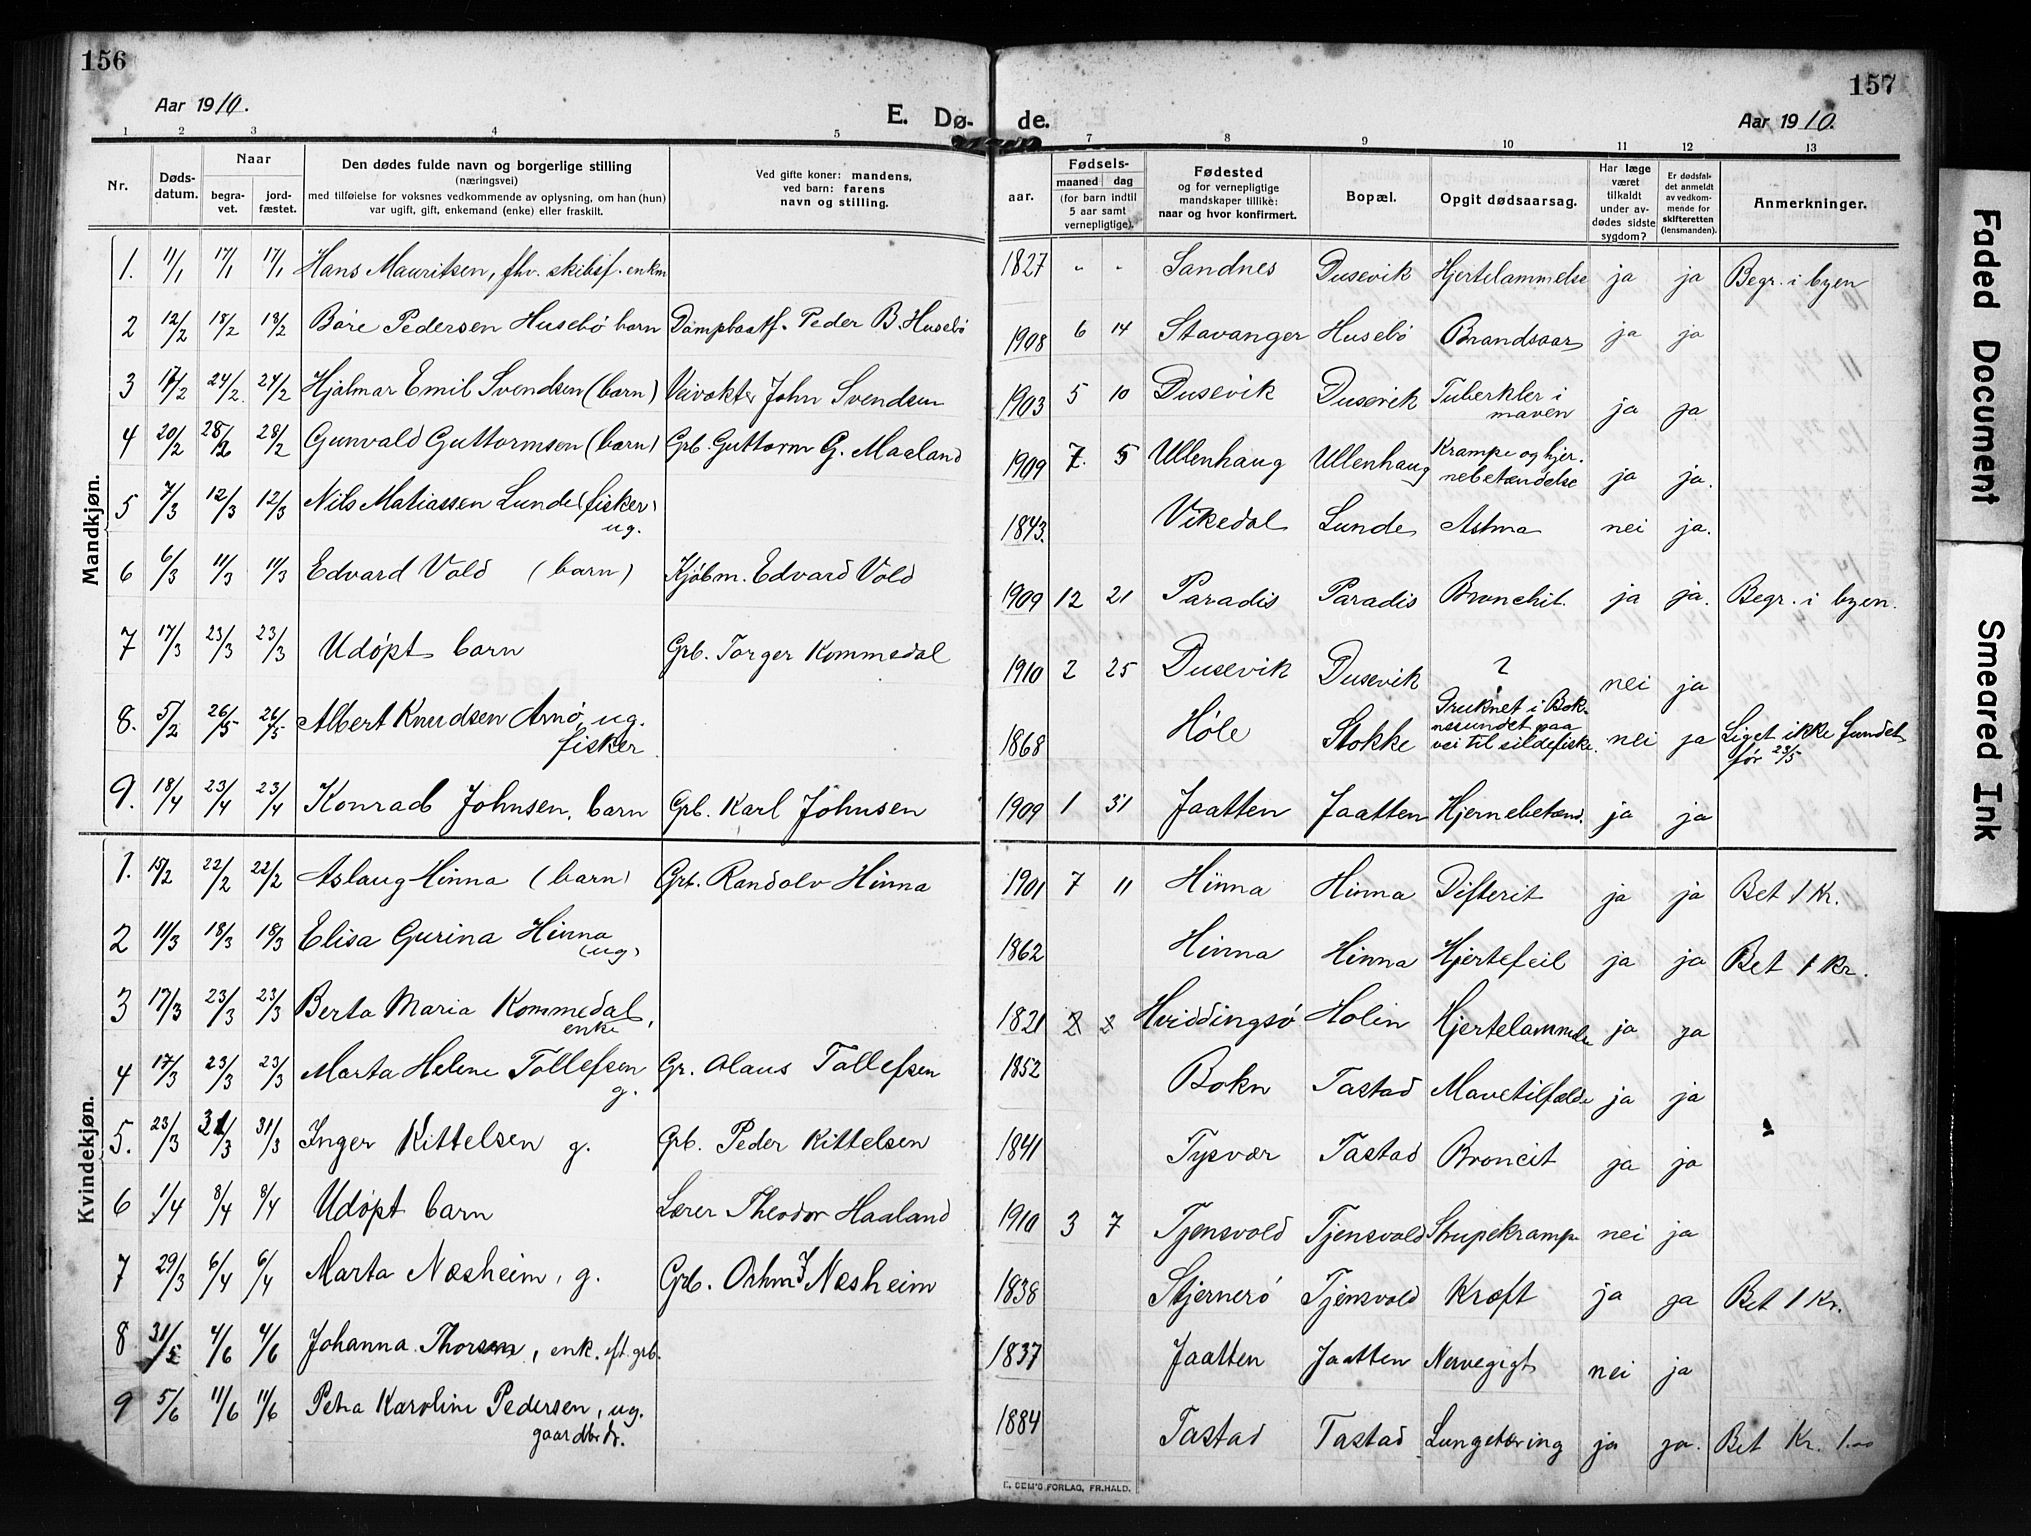 156
157
Aar 1910.
E. Dø-
de.
Aar 1910.
1 2 3 4 5 7 8 9 10 11 12 13
Nr.
Døds-
datum.
Naar
begra-
vet.
jord-
fæstet.
Den dødes fulde navn og borgerlige stilling
(næringsvei)
med tilføielse for voksnes vedkommende av oplysning, om han (hun)
var ugift, gift, enkemand (enke) eller fraskilt.
Ved gifte koner: mandens,
ved barn: farens
navn og stilling.
Fødsels-
aar.
maaned dag
(for barn indtil
5 aar samt
vernepligtige).
Fødested
og for vernepligtige
mandskaper tillike:
naar og hvor konfirmert.
Bopæl.
Opgit dødsaarsag.
Har læge
været
tilkaldt
under av-
dødes sidste
sygdom?
Er dødsfal-
det anmeldt
av vedkom-
mende for
skifteretten
(lensmanden).
Anmerkninger.
Mandkjøn.
1. 11/1 17/1 17/1 Hans Mauritsen, fhv. skibsf. enkm 1827 " " Sandnes Dusevik Hjertelammelse ja ja Begr. i byen
2 12/2 18/2 18/2 Båre Pedersen Husebö barn Dampbaatf. Peder B. Husebö 1908 6 14 Stavanger Husebö Brandsaar ja ja
3 17/2 24/2 24/2 Hjalmar Emil Svendsen (barn) Veivokter John Svendsen 1903 5 10 Dusevik Dusevik Tuberkler i
maven ja ja
4 20/2 28/2 28/2 Gunvald Guttormsen (barn) Grb. Guttorm G. Maaland 1909 7. 5 Ullenhaug Ullenhaug Krampe og hjer-
nebetændelse ja ja.
5 7/3 12/3 12/3 Nils Matiassen Lunde (fisker)
ug. 1843. Vikedal Lunde Astma nei ja.
6 6/3 11/3 11/3 Edvard Vold (barn) Kjöbm. Edvard Vold 1909 12 21 Paradis Paradis Bronchit. ja ja. Begr. i byen.
7 17/3 23/3 23/3 Udöpt barn Grb. Torger Kommedal 1910 2 25 Dusevik Dusevik ? nei ja
8. 5/2 26/5 26/5 Albert Knudsen Arnö, ug.
fisker 1868 Höle Stokke Druknet i Bok-
nssundet paa
vei til sildefiske. nei ja Liget ikke fundet
før 23/5
9. 18/4 23/4 23/4 Konrad Johnsen, barn Grb. Karl Johnsen 1909 1 31 Jaatten Jaatten Hjernebetænd. ja ja
Kvindekjøn.
1. 15/2 22/2 22/2 Aslaug Hinna (barn) Grb. Randolv Hinna 1901 7 11 Hinna Hinna Difterit ja ja Bet 1 Kr.
2 11/3 18/3 18/3 Elisa Gurina Hinna
(ug) 1862 Hinna Hinna Hjertefeil ja ja Bet 1 Kr.
3 17/3 23/3 23/3 Berta Maria Kommedal,
enke 1821 2 2 Hviddingsö Holin Hjertelammelse ja ja
4 17/3 23/3 23/3 Marta Helene Tollefsen
g. Gr. Olaus Tollefsen 1852 Bokn Tastad Mavetilfælde ja ja
5. 23/3 31/3 31/3 Inger Kittelsen g. Grb. Peder Kittelsen 1841 Tysvær Tastad Broncit ja ja
6 1/4 8/4 8/4 Udöpt barn Lærer Theodor Haaland 1910 3 7 Tjensvold Tjensvold Strupekrampe nei ja
7 29/3 6/4 6/4 Marta Næsheim, g. Grb. Næsheim 1838 Stjernerö Tjensvold Kræft ja ja Bet 1 Kr.
8 31/5 4/6 4/6 Johanna Thorsen, enk. eft. grb. 1837 Jaatten Jaatten Nervegigt nei ja
9 5/6 11/6 11/6 Petra Karoline Pedersen, ug.
gaardbr.d. 1884 Tastad Tastad Lungetæring ja ja. Bet Kr. 1.00
E. SEM'S FORLAG, FR.HALD.
Faded Document
Smeared Ink